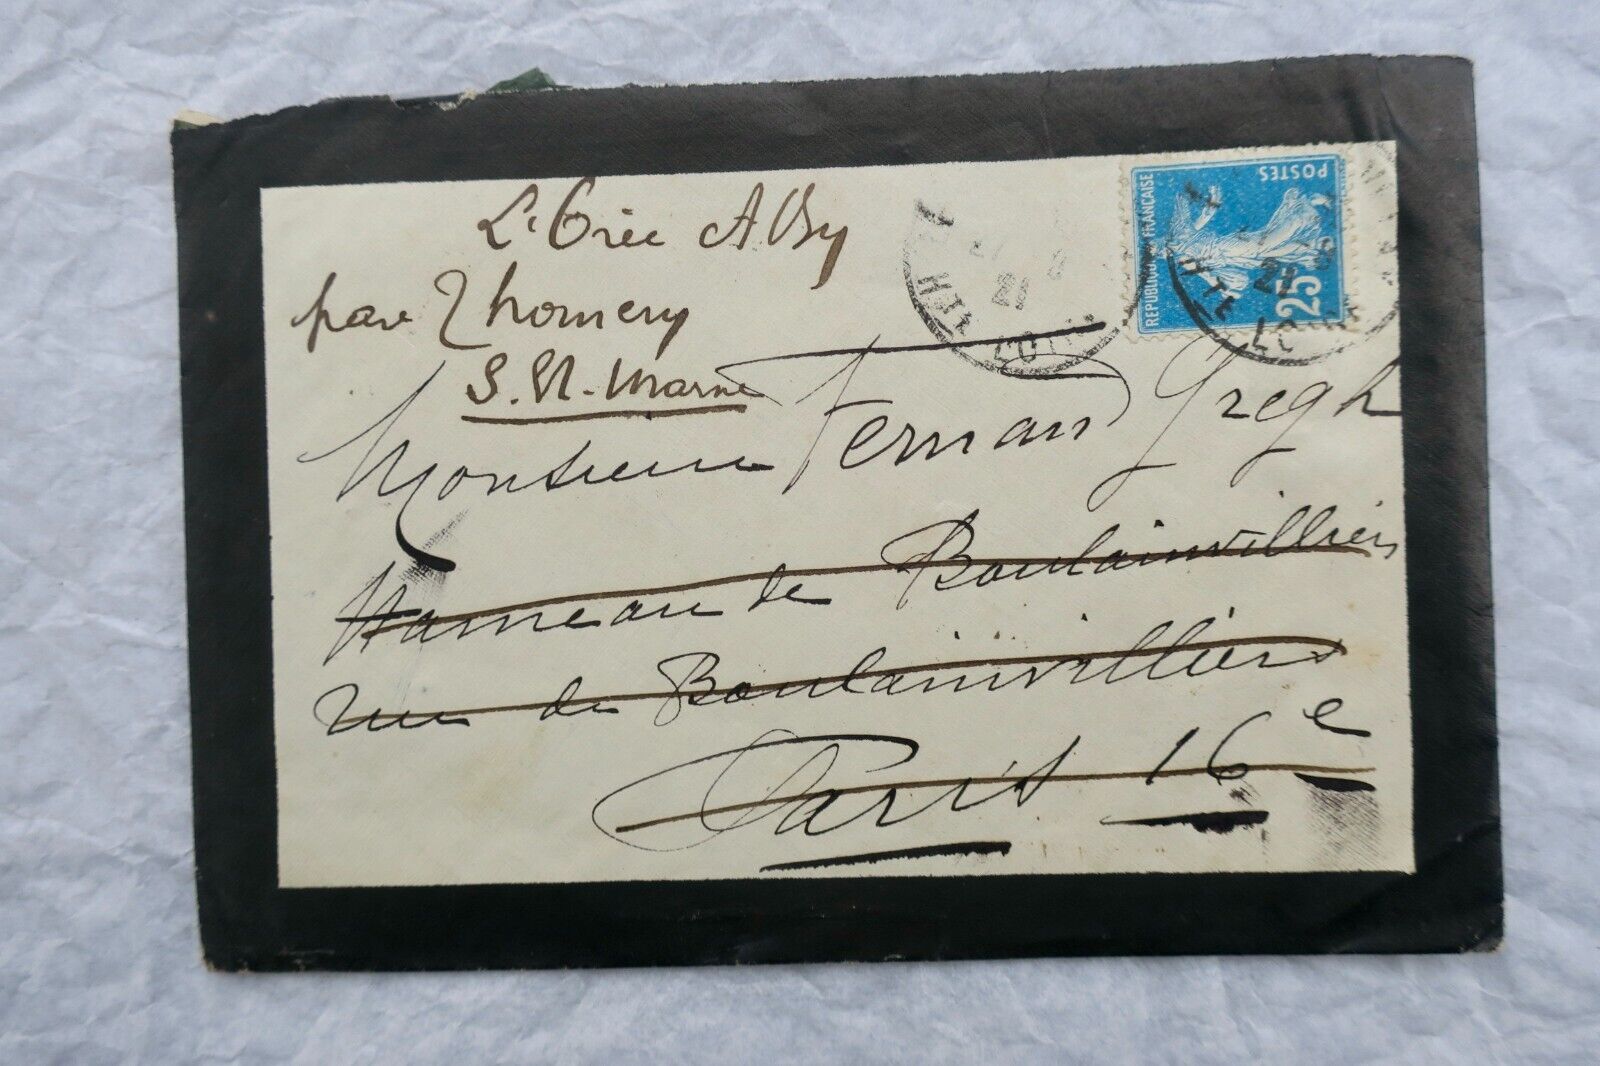 L'Orée A By
par Thomery
S. et. Marne
Monsieur Fernand Gregh
Hameau de Boulainvilliers
rue de Boulainvilliers
Paris 16e
REPUBLIQUE FRANÇAISE
POSTES
25